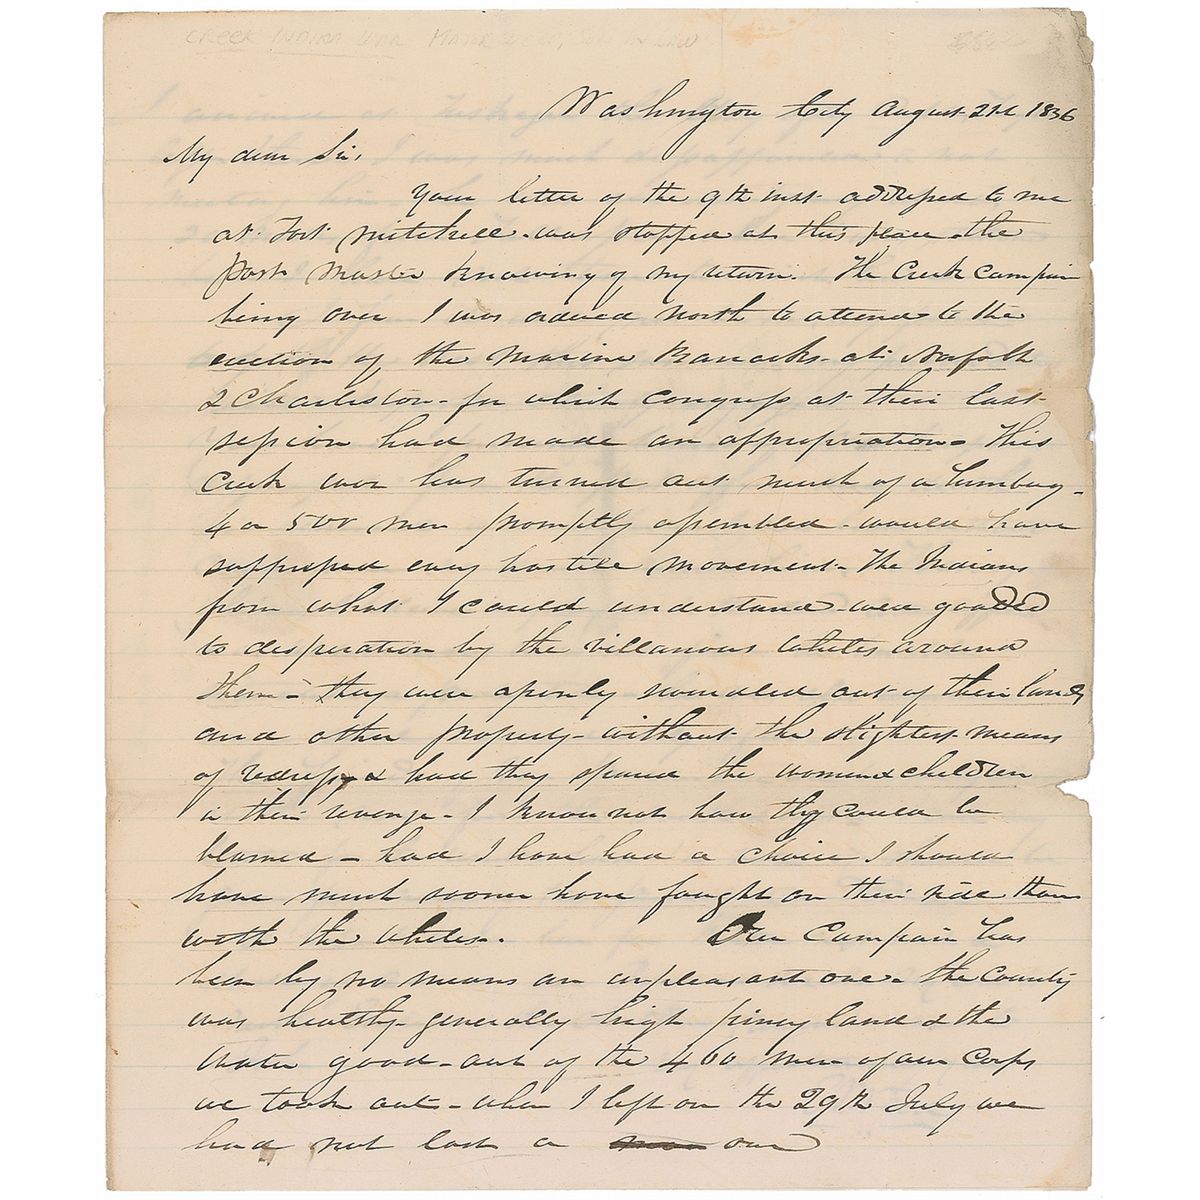 CREEK INDIAN WAR MAJOR SON IN LAW
Washington City August 21st 1836
My dear Sir,
Your letter of the 9th inst. addressed to me
at Fort Mitchell - was stopped at this place - the
Post Master knowing of my return. The Creek Campain
being over I was ordered North to attend to the
erection of the Marine Barracks - at Norfolk
& Charleston - for which Congress at their last
session had made an appropriation - This
Creek war has turned out much of a humbug -
4 or 500 men promptly assembled - would have
suppressed every hostile movement - The Indians
from what I could understand were goaded
to desperation by the villanous whites around
them - they were openly swindled out of their lands
and other property - without the slightest means
of redress & had they spared the women & children
in their revenge - I know not how they could be
blamed - had I have had a choice I should
have much sooner have fought on their side than
with the whites -. Our Campain has
been by no means an unpleasant one - the County
was healthy - generally high piney land & the
water good - out of the 460 men of our Corps
we took out - when I left on the 29th July we
had not lost a one